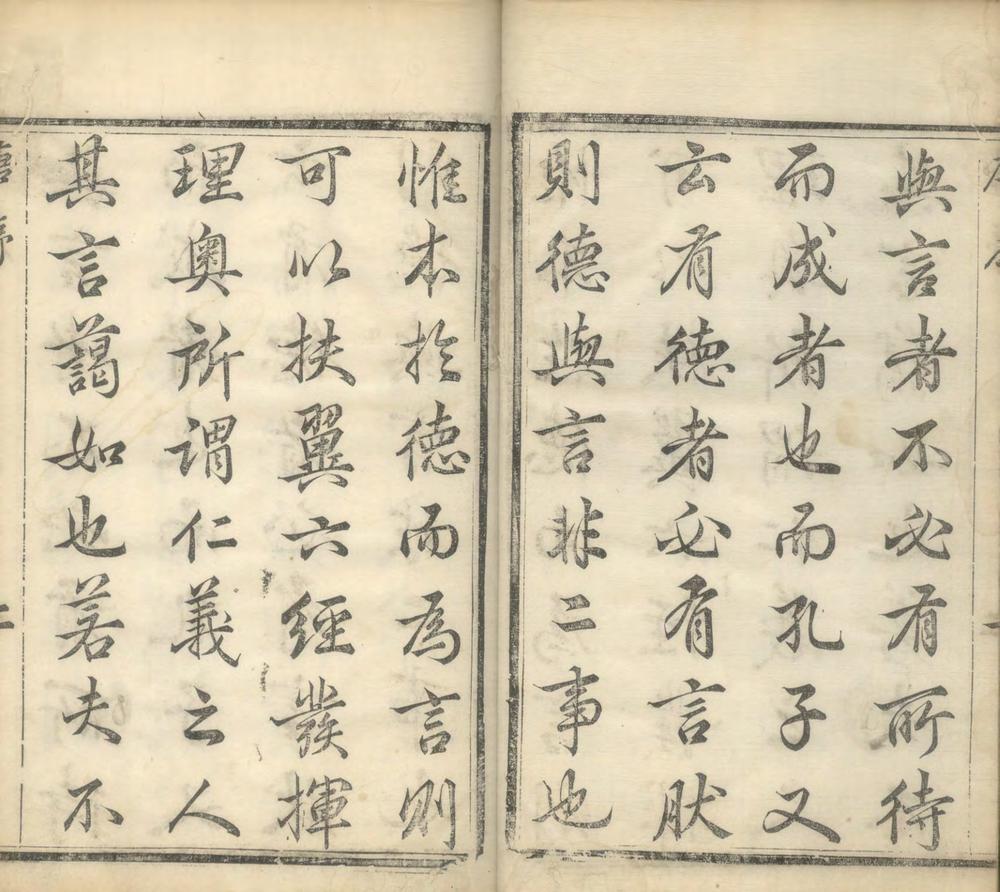 與言者不必有所待
而成者也而孔子又
云有德者必有言肰
則德與言非二事也
惟本於德而為言則
可以扶翼六經發揮
理奧所謂仁義之人
其言藹如也若夫不